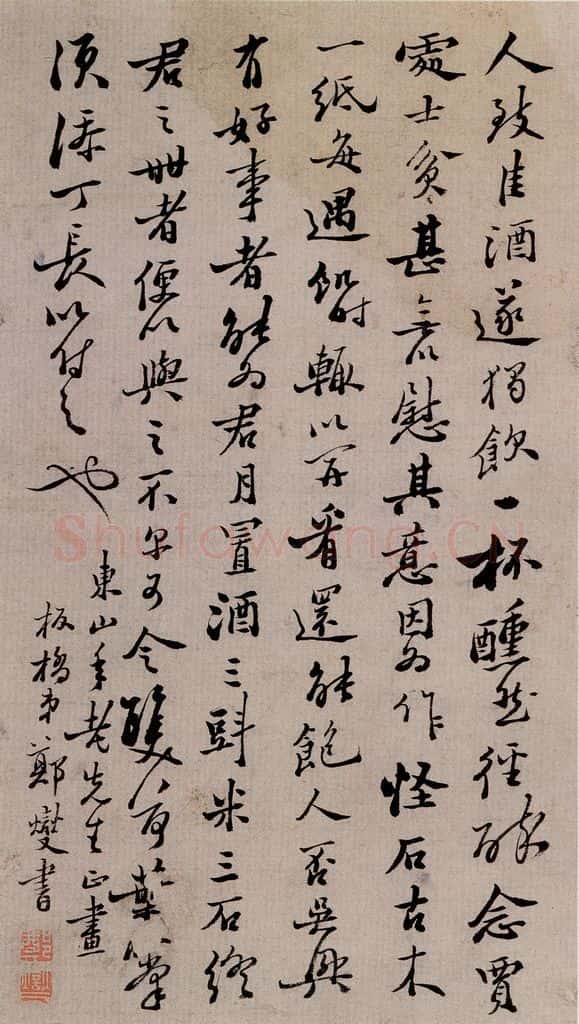 人致佳酒遂獨飲一杯醺然徑醉念賈
處士貧甚无以慰其意因為作怪石古木
一紙每遇飢時輒以開看還能飽人否吳興
有好事者能為君月置酒三㪷米三石終
君之世者便以與之不尔可令雙荷葉掌
須添丁長以付之也
東山年老先生正畫
板橋弟鄭燮書
Shufawang.CN